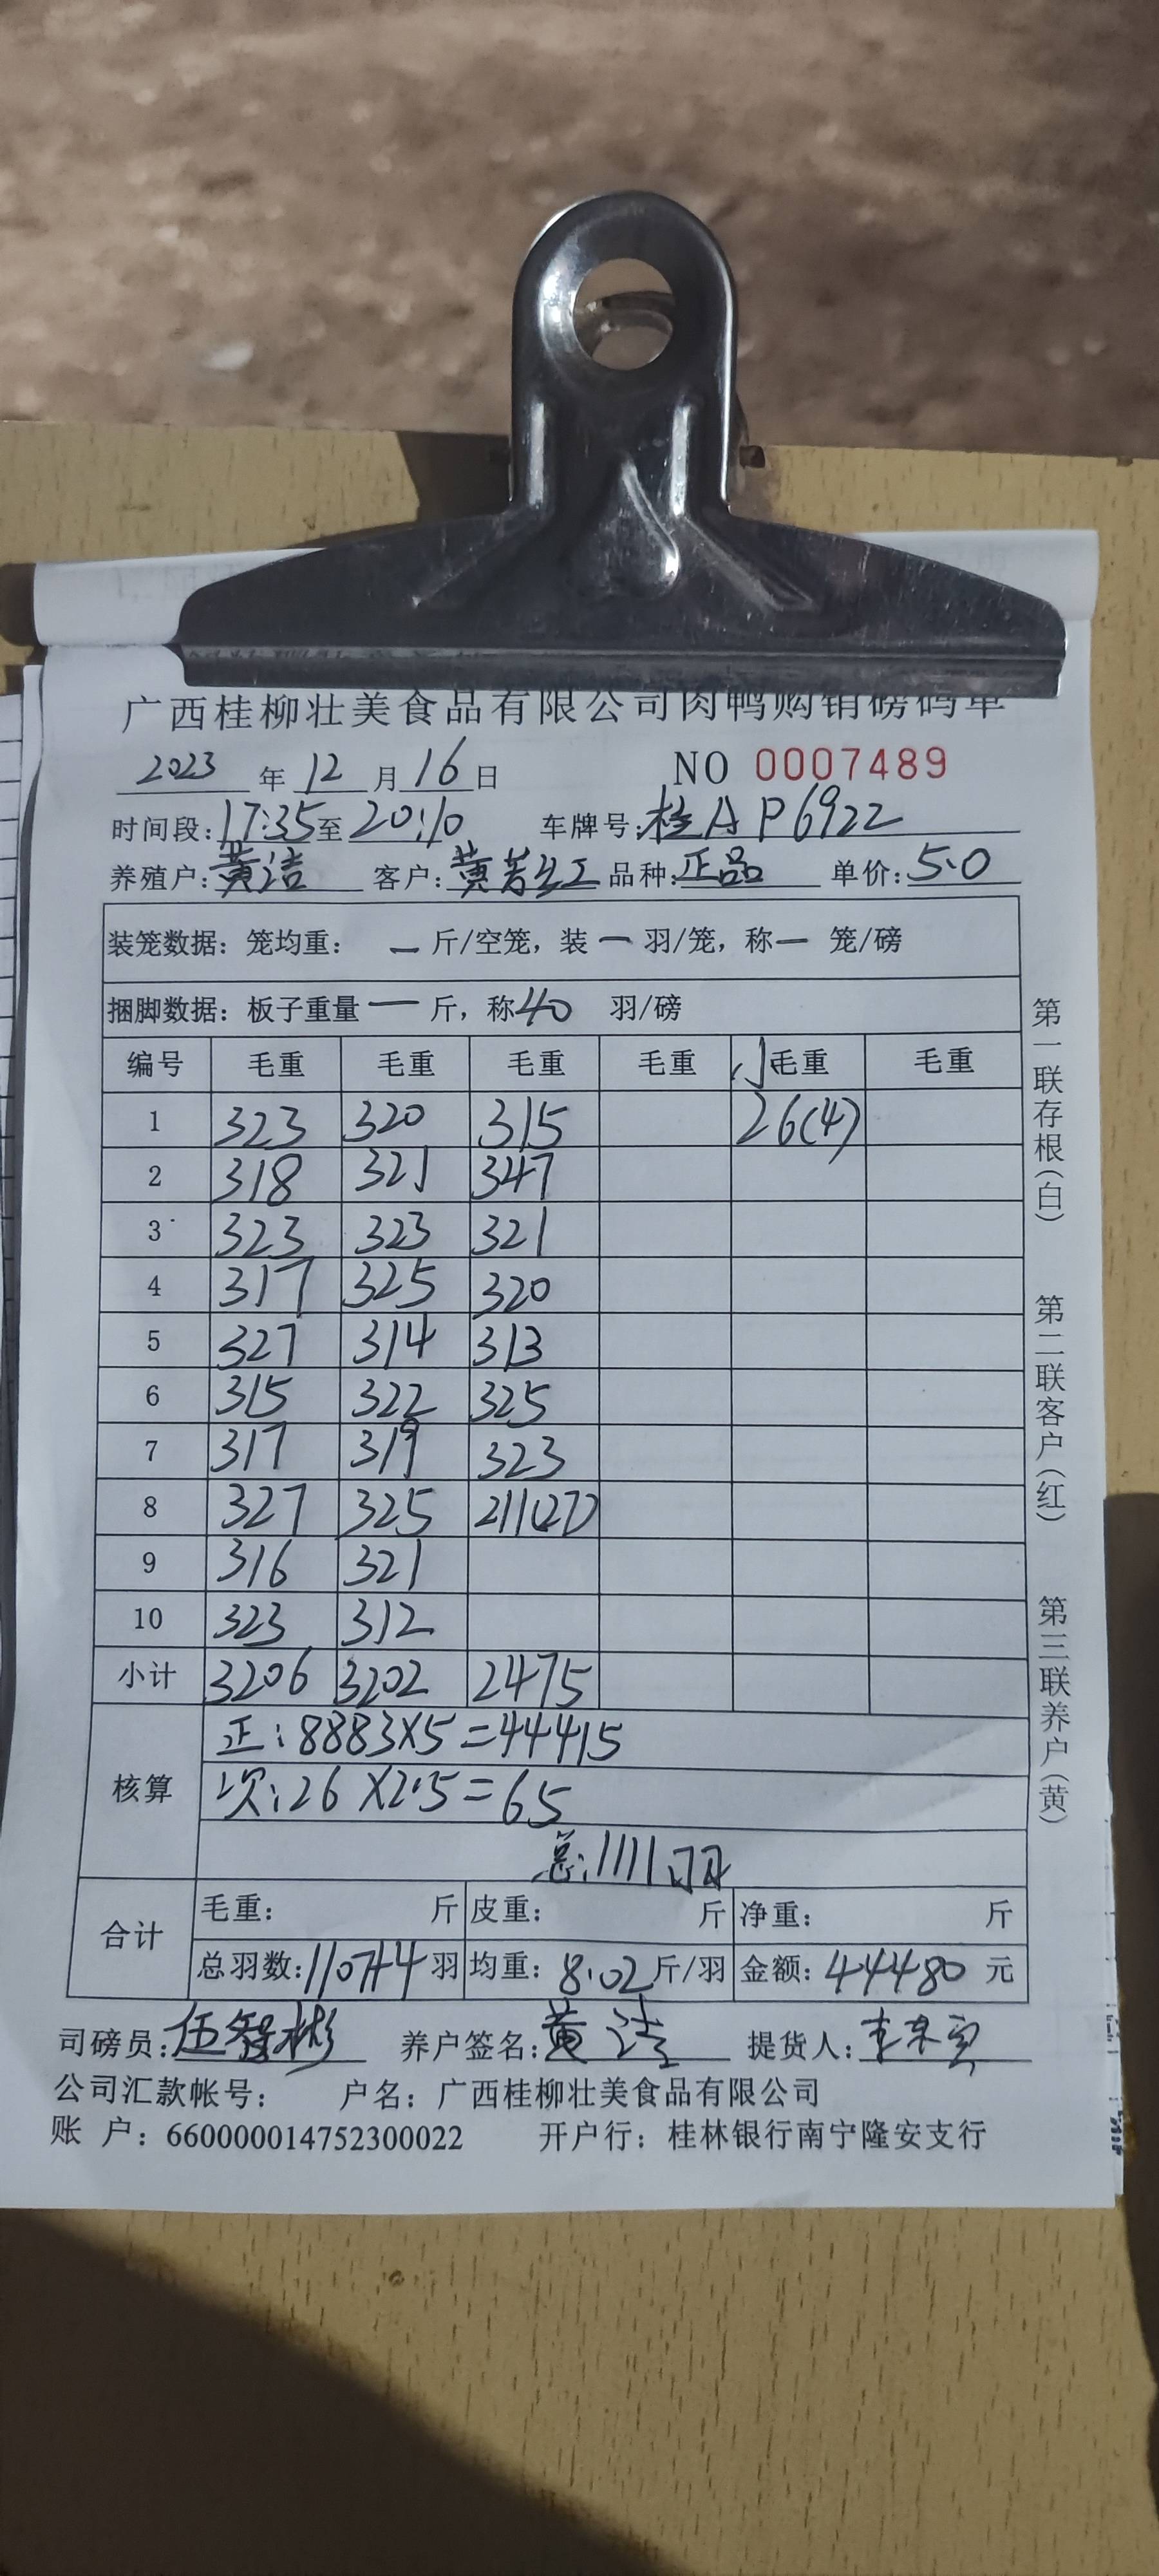 广西桂柳壮美食品有限公司肉鸭购销磅码单
2023 年 12 月 16 日 NO 0007489
时间段:17:35至20:10 车牌号:桂AP6922
养殖户:黄洁 客户:黄芳红 品种:正品 单价:5.0
装笼数据:笼均重: — 斤/空笼,装 — 羽/笼,称 — 笼/磅
捆脚数据:板子重量 — 斤,称40 羽/磅
编号 毛重 毛重 毛重 毛重 小毛重 毛重
1 323 320 315 26(4)
2 318 321 347
3 323 323 321
4 317 325 320
5 327 314 313
6 315 322 325
7 317 319 323
8 327 325 211(27)
9 316 321
10 323 312
小计 3206 3202 2475
核算
正:8883X5=44415
次:26X2.5=65
总:1111羽
合计
毛重: 斤 皮重: 斤 净重: 斤
总羽数:1107+4羽 均重:8.02斤/羽 金额:44480元
司磅员:伍智彬 养户签名:黄洁 提货人:
公司汇款帐号: 户名:广西桂柳壮美食品有限公司
账 户:660000014752300022 开户行:桂林银行南宁隆安支行
第一联存根(白)
第二联客户(红)
第三联养户(黄)